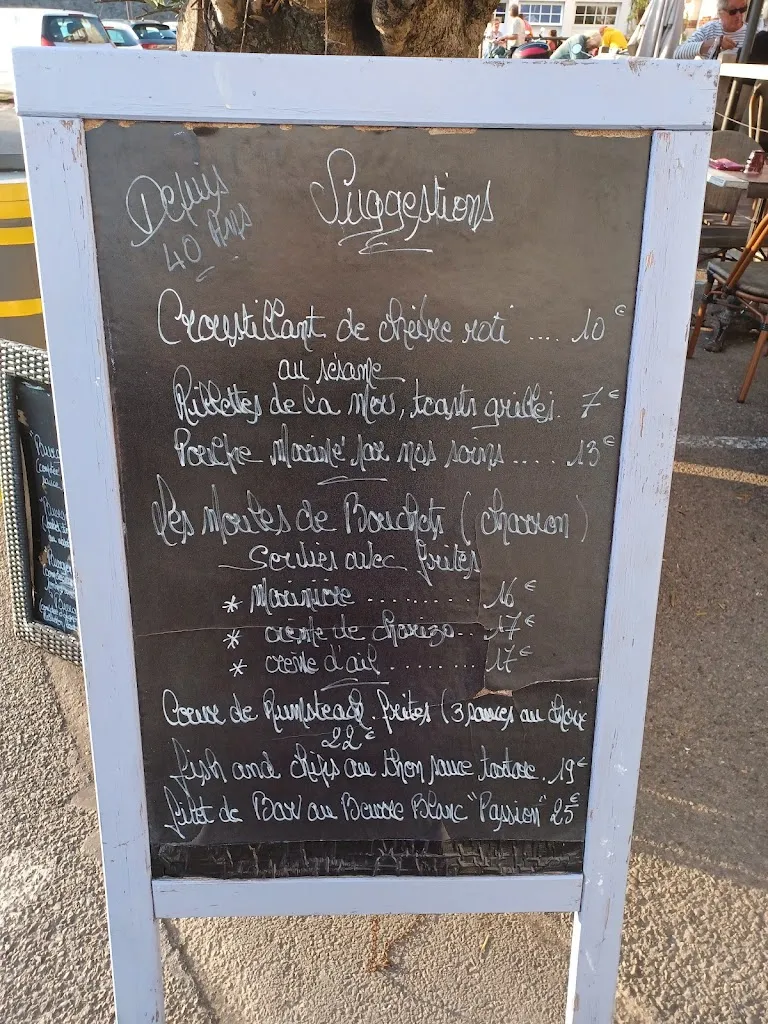 Depuis
40 Ans
Suggestions
Croustillant de chèvre roti .... 10€
au sésame
Rillettes de la mer, toasts grillés. 7€
Poulpe Mariné par nos soins ..... 13€
Les Moules de Bouchots (charron)
Servies avec frites
* Marinière .......... 16€
* crème de chorizo.. 17€
* crème d'ail .......... 17€
Coeur de Rumsteack. frites (3 sauces au choix
22€
fish and chips au thon sauce tartare. 19€
filet de Bar au Beurre Blanc "Passion" 25€